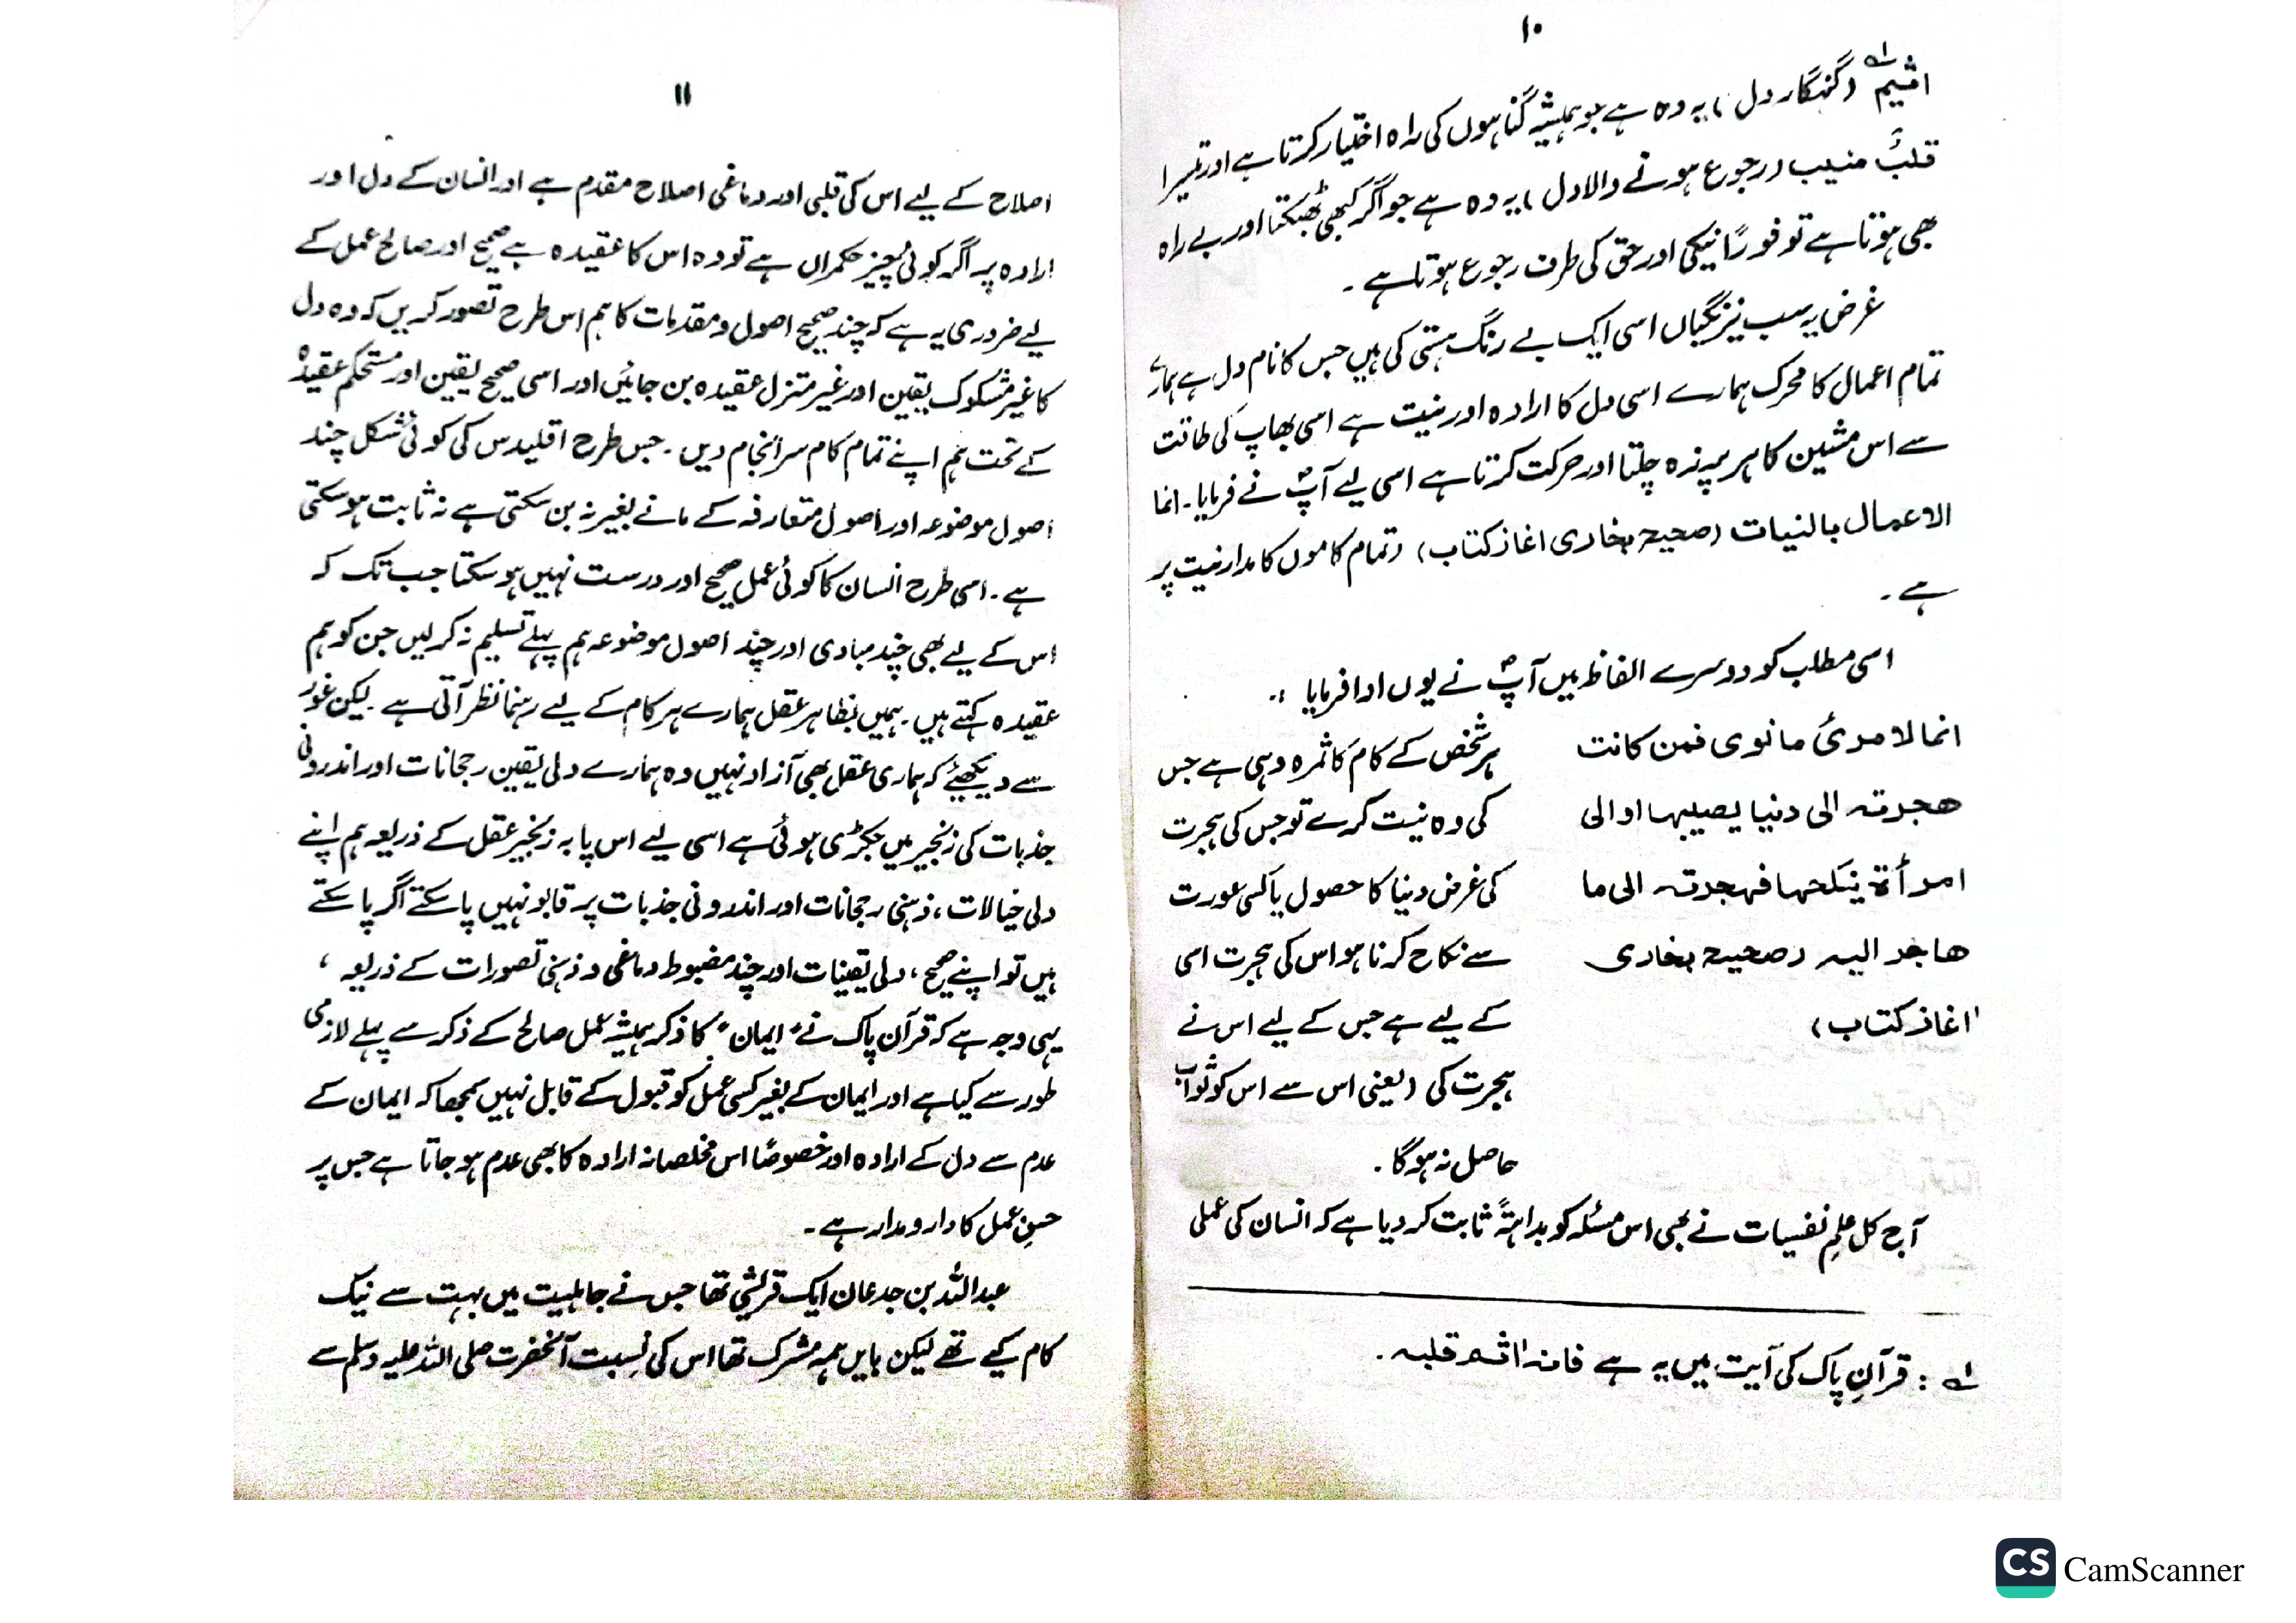 ۱۰
اثیم؂۱ (گنہگار دل) یہ وہ ہے جو ہمیشہ گناہوں کی راہ اختیار کرتا ہے اور تیسرا
قلبٌ منیب (رجوع ہونے والا دل) یہ وہ ہے جو اگر کبھی بھٹکتا اور بے راہ
بھی ہوتا ہے تو فورًا نیکی اور حق کی طرف رجوع ہوتا ہے ۔
غرض یہ سب نیرنگیاں اسی ایک بے رنگ ہستی کی ہیں جس کا نام دل ہے ہمارے
تمام اعمال کا محرک ہمارے اسی دل کا ارادہ اور نیت ہے اسی بھاپ کی طاقت
سے اس مشین کا ہر پرزہ چلتا اور حرکت کرتا ہے اسی لیے آپؐ نے فرمایا ۔ انما
الاعمال بالنیات (صحیح بخاری اغاز کتاب) (تمام کاموں کا مدار نیت پر
ہے ۔
اسی مطلب کو دوسرے الفاظ میں آپؐ نے یوں ادا فرمایا :۔
انما لا مرئ ما نوی فمن کانت
ھجرتہ الی دنیا یصیبہا او الی
امرأۃ ینکحہا فہجرتہ الی ما
ھاجر الیہ (صحیح بخاری
اغاز کتاب)
ہر شخص کے کام کا ثمرہ وہی ہے جس
کی وہ نیت کرے تو جس کی ہجرت
کی غرض دنیا کا حصول یا کسی عورت
سے نکاح کرنا ہو اس کی ہجرت اسی
کے لیے ہے جس کے لیے اس نے
ہجرت کی (یعنی اس سے اس کو ثواب
حاصل نہ ہوگا ۔
آج کل علمِ نفسیات نے بھی اس مسئلہ کو بداہتہً ثابت کر دیا ہے کہ انسان کی عملی
؂۱ : قرآنِ پاک کی آیت میں یہ ہے فانہ اٰثم قلبہ ۔
۱۱
اصلاح کے لیے اس کی قلبی اور دماغی اصلاح مقدم ہے اور انسان کے دل اور
ارادہ پر اگر کوئی چیز حکمراں ہے تو وہ اس کا عقیدہ ہے صحیح اور صالح عمل کے
لیے ضروری یہ ہے کہ چند صحیح اصول و مقدمات کا ہم اس طرح تصور کریں کہ وہ دل
کا غیر مشکوک یقین اور غیر متزلزل عقیدہ بن جائیں اور اسی صحیح یقین اور مستحکم عقیدہ
کے تحت ہم اپنے تمام کام سرانجام دیں ۔ جس طرح اقلیدس کی کوئی شکل چند
اصول موضوعہ اور اصول متعارفہ کے مانے بغیر نہ بن سکتی ہے نہ ثابت ہو سکتی
ہے ۔ اسی طرح انسان کا کوئی عمل صحیح اور درست نہیں ہو سکتا جب تک کہ
اس کے لیے بھی چند مبادی اور چند اصول موضوعہ ہم پہلے تسلیم نہ کر لیں جن کو ہم
عقیدہ کہتے ہیں ۔ ہمیں بظاہر عقل ہمارے ہر کام کے لیے رہنما نظر آتی ہے ۔ لیکن غور
سے دیکھیئے کہ ہماری عقل بھی آزاد نہیں وہ ہمارے دلی یقین رجحانات اور اندرونی
جذبات کی زنجیر میں جکڑی ہوئی ہے اسی لیے اس پابہ زنجیر عقل کے ذریعہ ہم اپنے
دلی خیالات ، ذہنی رجحانات اور اندرونی جذبات پر قابو نہیں پا سکتے اگر پا سکتے
ہیں تو اپنے صحیح ، دلی یقینیات اور چند مضبوط دماغی و ذہنی تصورات کے ذریعہ ،
یہی وجہ ہے کہ قرآن پاک نے "ایمان" کا ذکر ہمیشہ عمل صالح کے ذکر سے پہلے لازمی
طور سے کیا ہے اور ایمان کے بغیر کسی عمل کو قبول کے قابل نہیں سمجھا کہ ایمان کے
عدم سے دل کے ارادہ اور خصوصًا اس مخلصانہ ارادہ کا بھی عدم ہو جاتا ہے جس پر
حسنِ عمل کا دار و مدار ہے ۔
عبداللہ بن جدعان ایک قریشی تھا جس نے جاہلیت میں بہت سے نیک
کام کیے تھے لیکن بایں ہمہ مشرک تھا اس کی نسبت آنحضرت صلی اللہ علیہ وسلم سے
CS CamScanner